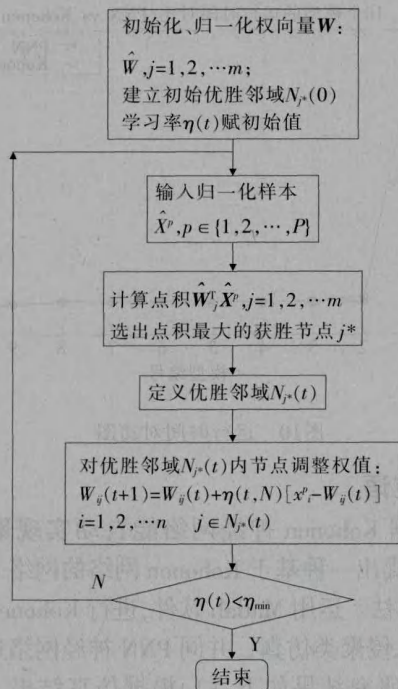 初始化、归一化权向量W:
Ŵ,j=1,2,⋯m;
建立初始优胜邻域Nj*(0)
学习率η(t)赋初始值
输入归一化样本
X̂ᵖ,p∈{1,2,⋯,P}
计算点积ŴᵀⱼX̂ᵖ,j=1,2,⋯m
选出点积最大的获胜节点j*
定义优胜邻域Nj*(t)
对优胜邻域Nj*(t)内节点调整权值:
Wij(t+1)=Wij(t)+η(t,N)[xᵖi-Wij(t)]
i=1,2,⋯n j∈Nj*(t)
N
η(t)<ηmin
Y
结束